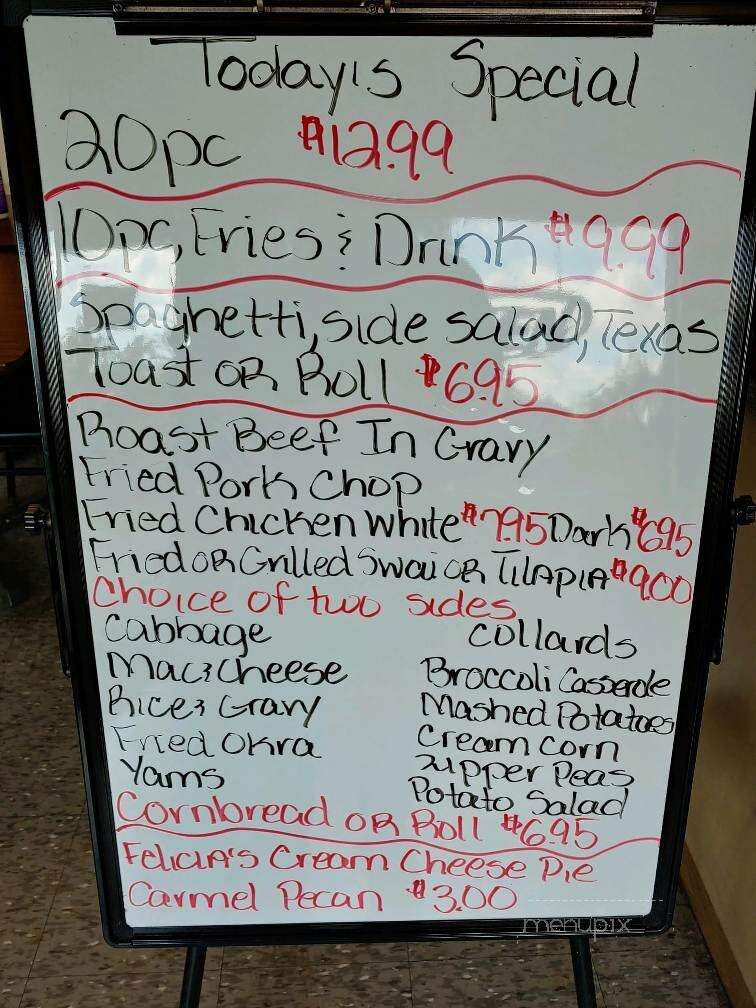 Today's Special
20pc $12.99
10pc, Fries & Drink $9.99
Spaghetti, side salad, Texas
Toast OR Roll $6.95
Roast Beef In Gravy
Fried Pork Chop
Fried Chicken White $7.95 Dark $6.95
Fried OR Grilled Swai OR TilApiA $9.00
Choice of two sides
Cabbage Collards
Mac & Cheese Broccoli Casserole
Rice & Gravy Mashed Potatoes
Fried Okra Cream Corn
Yams Zipper Peas
Potato Salad
Cornbread OR Roll $6.95
FeliciA's Cream Cheese Pie
Carmel Pecan $3.00
menupix